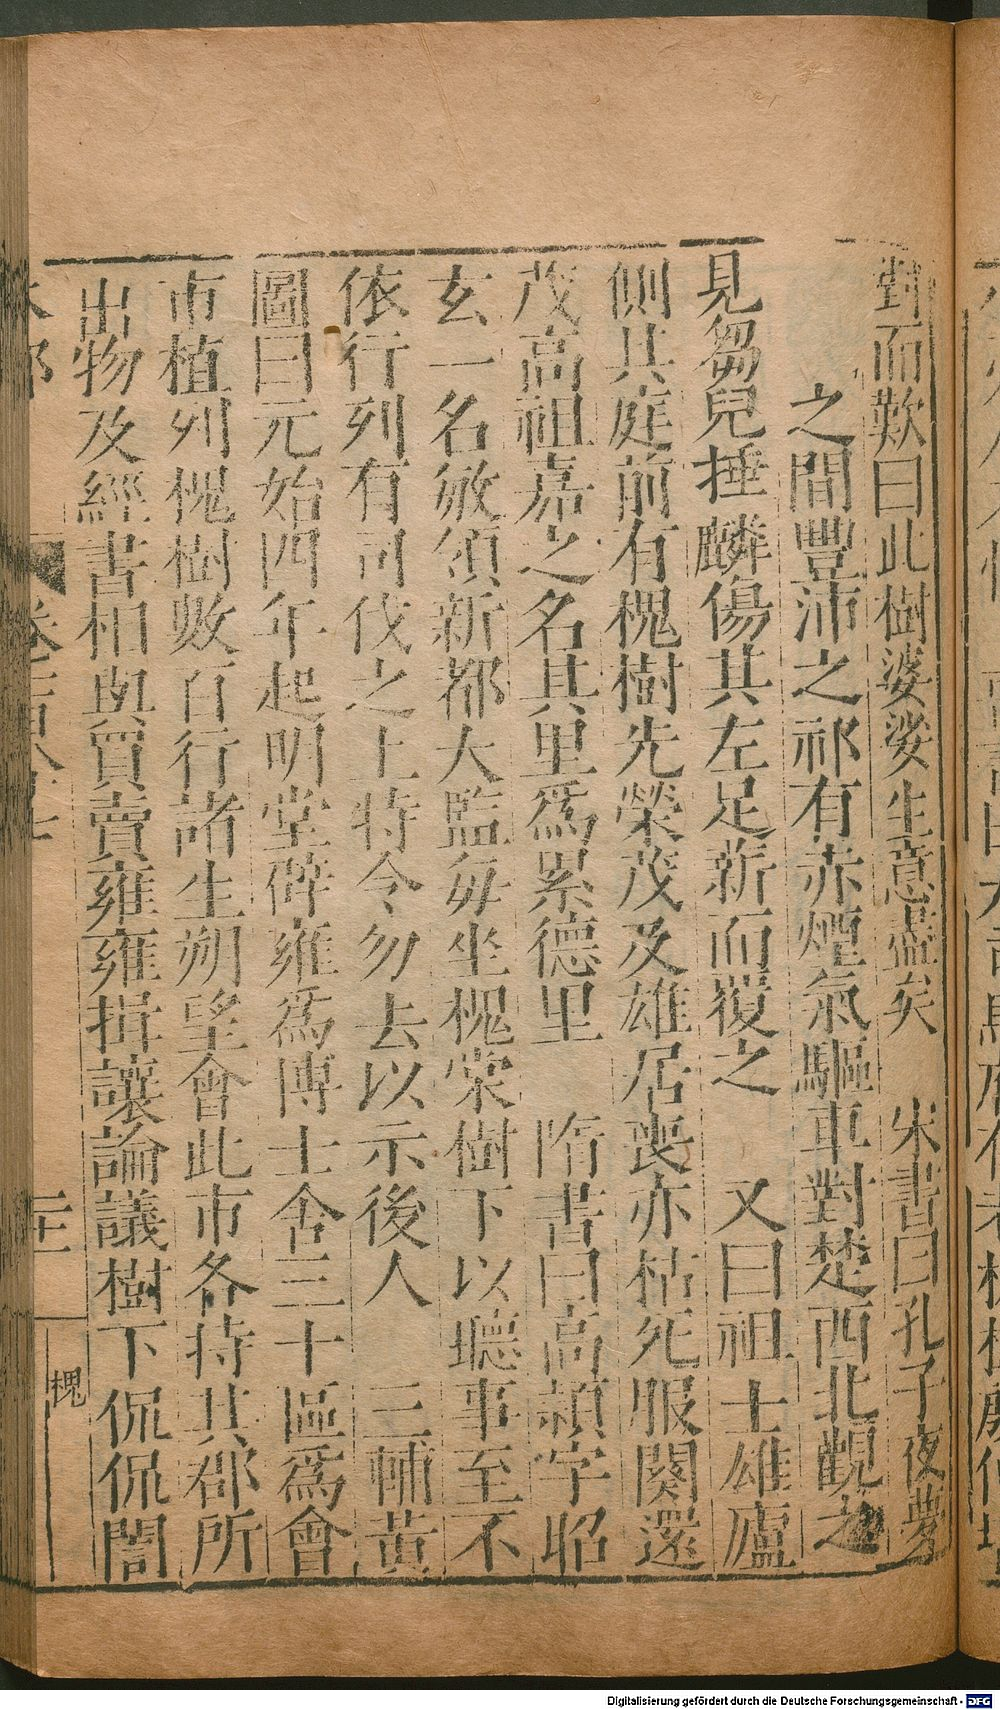 對而歎曰此樹婆娑生意盡矣　宋書曰孔子夜夢
之間豐沛之祁有赤煙氣驅車對楚西北觀之
見芻兒捶麟傷其左足薪而覆之　又曰祖士雄廬
側其庭前有槐樹先榮茂及雄居喪亦枯死服闋還
茂高祖嘉之名其里爲累德里　隋書曰高熲字昭
玄一名敏須新都大監每坐槐棠樹下以聽事至不
依行列有司伐之上特令勿去以示後人　三輔黃
圖曰元始四年起明堂辟雍爲博士舍三十區爲會
市植列槐樹數百行諸生朔望會此市各持其郡所
出物及經書相與買賣雍雍揖讓論議樹下侃侃誾
木部　卷三百八十七　二十一　槐
Digitalisierung gefördert durch die Deutsche Forschungsgemeinschaft - DFG